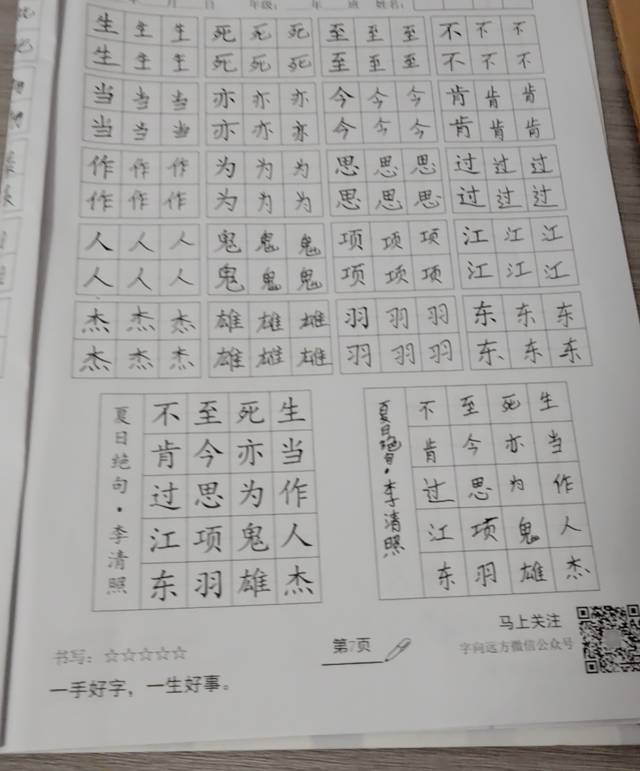 月 日 年级： 年 班 姓名：
生 生 生 死 死 死 至 至 至 不 不 不
生 生 生 死 死 死 至 至 至 不 不 不
当 当 当 亦 亦 亦 今 今 今 肯 肯 肯
当 当 当 亦 亦 亦 今 今 今 肯 肯 肯
作 作 作 为 为 为 思 思 思 过 过 过
作 作 作 为 为 为 思 思 思 过 过 过
人 人 人 鬼 鬼 鬼 项 项 项 江 江 江
人 人 人 鬼 鬼 鬼 项 项 项 江 江 江
杰 杰 杰 雄 雄 雄 羽 羽 羽 东 东 东
杰 杰 杰 雄 雄 雄 羽 羽 羽 东 东 东
生当作人杰
死亦为鬼雄
至今思项羽
不肯过江东
夏日绝句·李清照
生当作人杰
死亦为鬼雄
至今思项羽
不肯过江东
夏日绝句·李清照
书写：☆☆☆☆☆
一手好字，一生好事。
第7页
马上关注
字向远方微信公众号